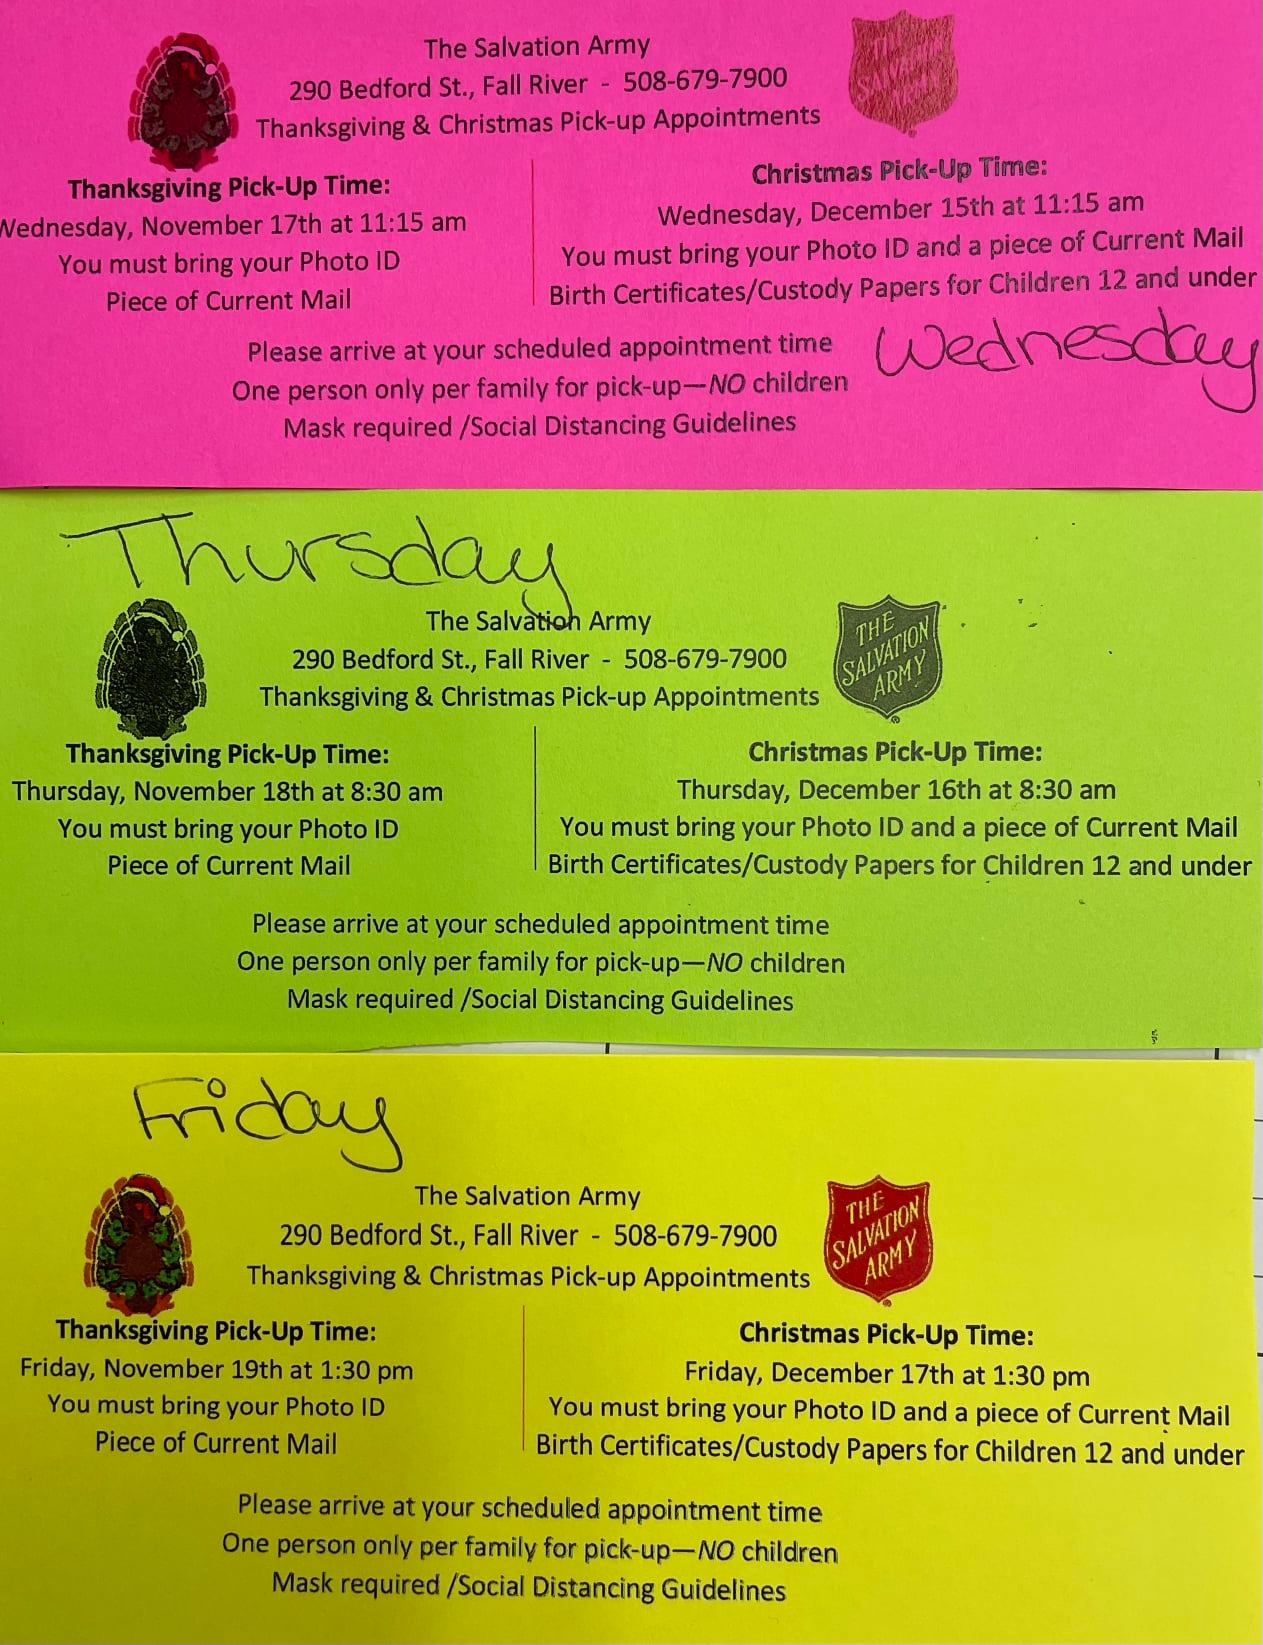 The Salvation Army
290 Bedford St., Fall River - 508-679-7900
Thanksgiving & Christmas Pick-up Appointments
THE SALVATION ARMY
Thanksgiving Pick-Up Time:
Wednesday, November 17th at 11:15 am
You must bring your Photo ID
Piece of Current Mail
Christmas Pick-Up Time:
Wednesday, December 15th at 11:15 am
You must bring your Photo ID and a piece of Current Mail
Birth Certificates/Custody Papers for Children 12 and under
Please arrive at your scheduled appointment time
One person only per family for pick-up—NO children
Mask required /Social Distancing Guidelines
Wednesday
Thursday
The Salvation Army
290 Bedford St., Fall River - 508-679-7900
Thanksgiving & Christmas Pick-up Appointments
THE
SALVATION
ARMY
Thanksgiving Pick-Up Time:
Thursday, November 18th at 8:30 am
You must bring your Photo ID
Piece of Current Mail
Christmas Pick-Up Time:
Thursday, December 16th at 8:30 am
You must bring your Photo ID and a piece of Current Mail
Birth Certificates/Custody Papers for Children 12 and under
Please arrive at your scheduled appointment time
One person only per family for pick-up—NO children
Mask required /Social Distancing Guidelines
Friday
The Salvation Army
290 Bedford St., Fall River - 508-679-7900
Thanksgiving & Christmas Pick-up Appointments
THE
SALVATION
ARMY
Thanksgiving Pick-Up Time:
Friday, November 19th at 1:30 pm
You must bring your Photo ID
Piece of Current Mail
Christmas Pick-Up Time:
Friday, December 17th at 1:30 pm
You must bring your Photo ID and a piece of Current Mail
Birth Certificates/Custody Papers for Children 12 and under
Please arrive at your scheduled appointment time
One person only per family for pick-up—NO children
Mask required /Social Distancing Guidelines